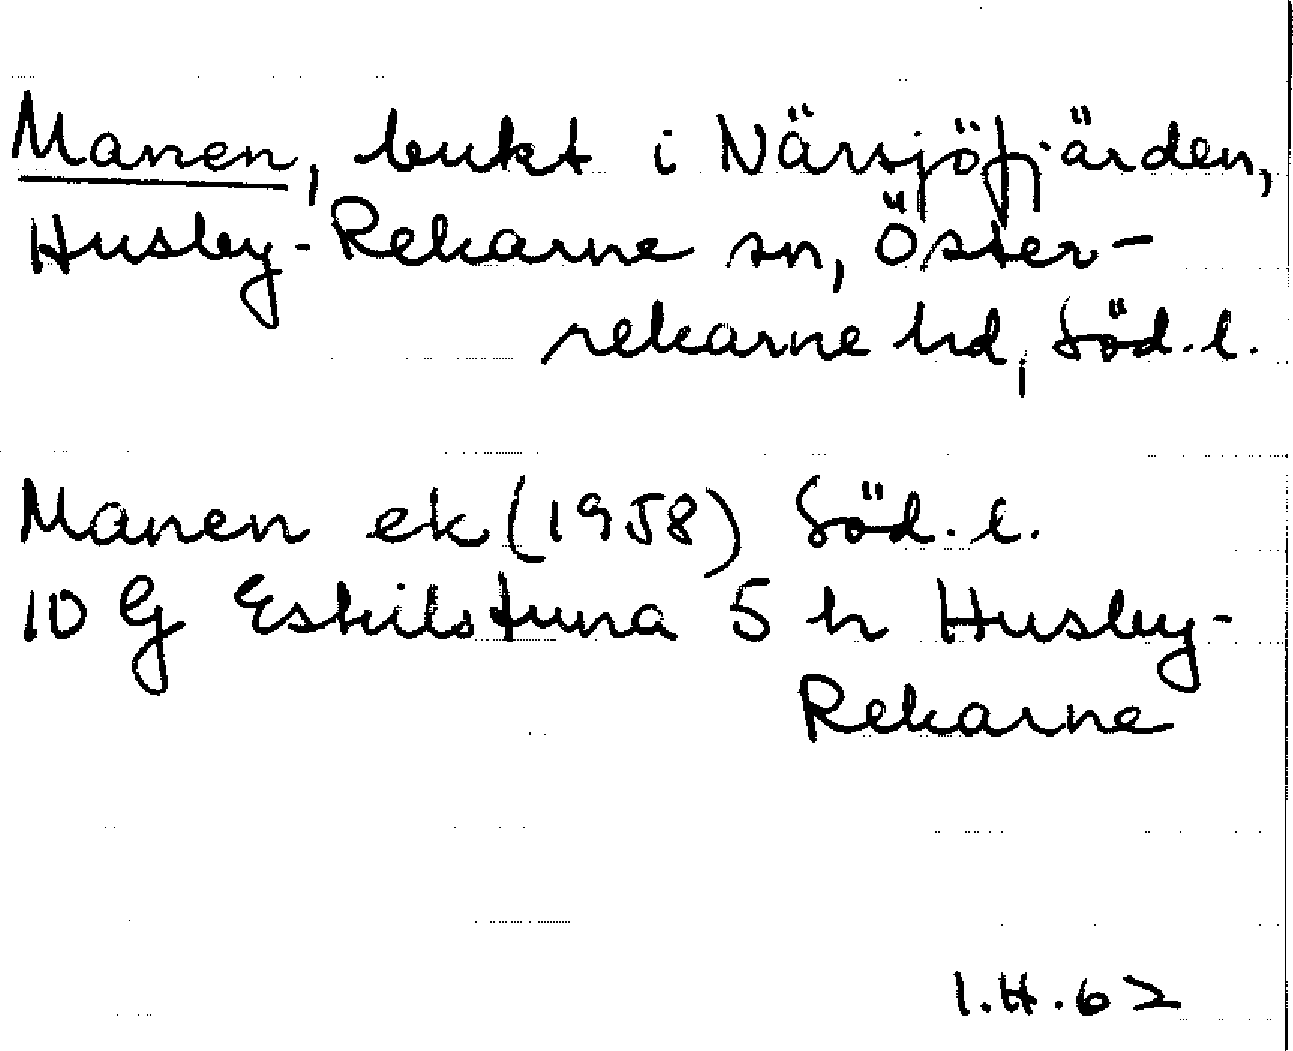 Manen, bukt i Närsjöfjärden,
Husby-Rekarne sn, Öster-
rekarne hd, Söd.l.
Manen ek (1958) Söd.l.
10 G Eskilstuna 5 h Husby-
Rekarne
I.H.62